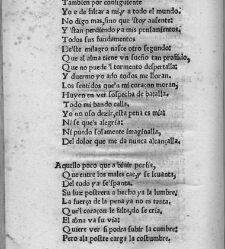 Tambien por consiguiente
Yo e de faltar a mi, y a todo el mundo.
No digo mas, sino que 'stoy ausente:
Y 'stan perdiendo ya mis pensamientos,
Todos sus fundamentos
De'ste milagro nasce otro segundo:
Que al alma tiene un sueño tan profundo,
Que no puede 'l tormento despertalla:
Y duermo yo assi todos me lloran.
Los sentidos que'n mi coraçon moran,
Huyen en ver sospecha de batalla.
Todo mi bando calla.
Yo no oso dezir, esta pena es mia:
Ni se que's alegria:
Ni puedo solamente imaginalla,
Del dolor que me da nunca alcançalla.
Aquello poco que a bivir porfia,
Que entre los males cae, y se levanta,
Del todo ya se'spanta,
Su luz postrera a hecho ya la lumbre:
La fuerça de la pena ya no es tanta,
Que'l coraçon la siste, do se cria,
El alma va su via:
Quiere ver si podra subir la cumbre:
Pero ala postre carga la costumbre,